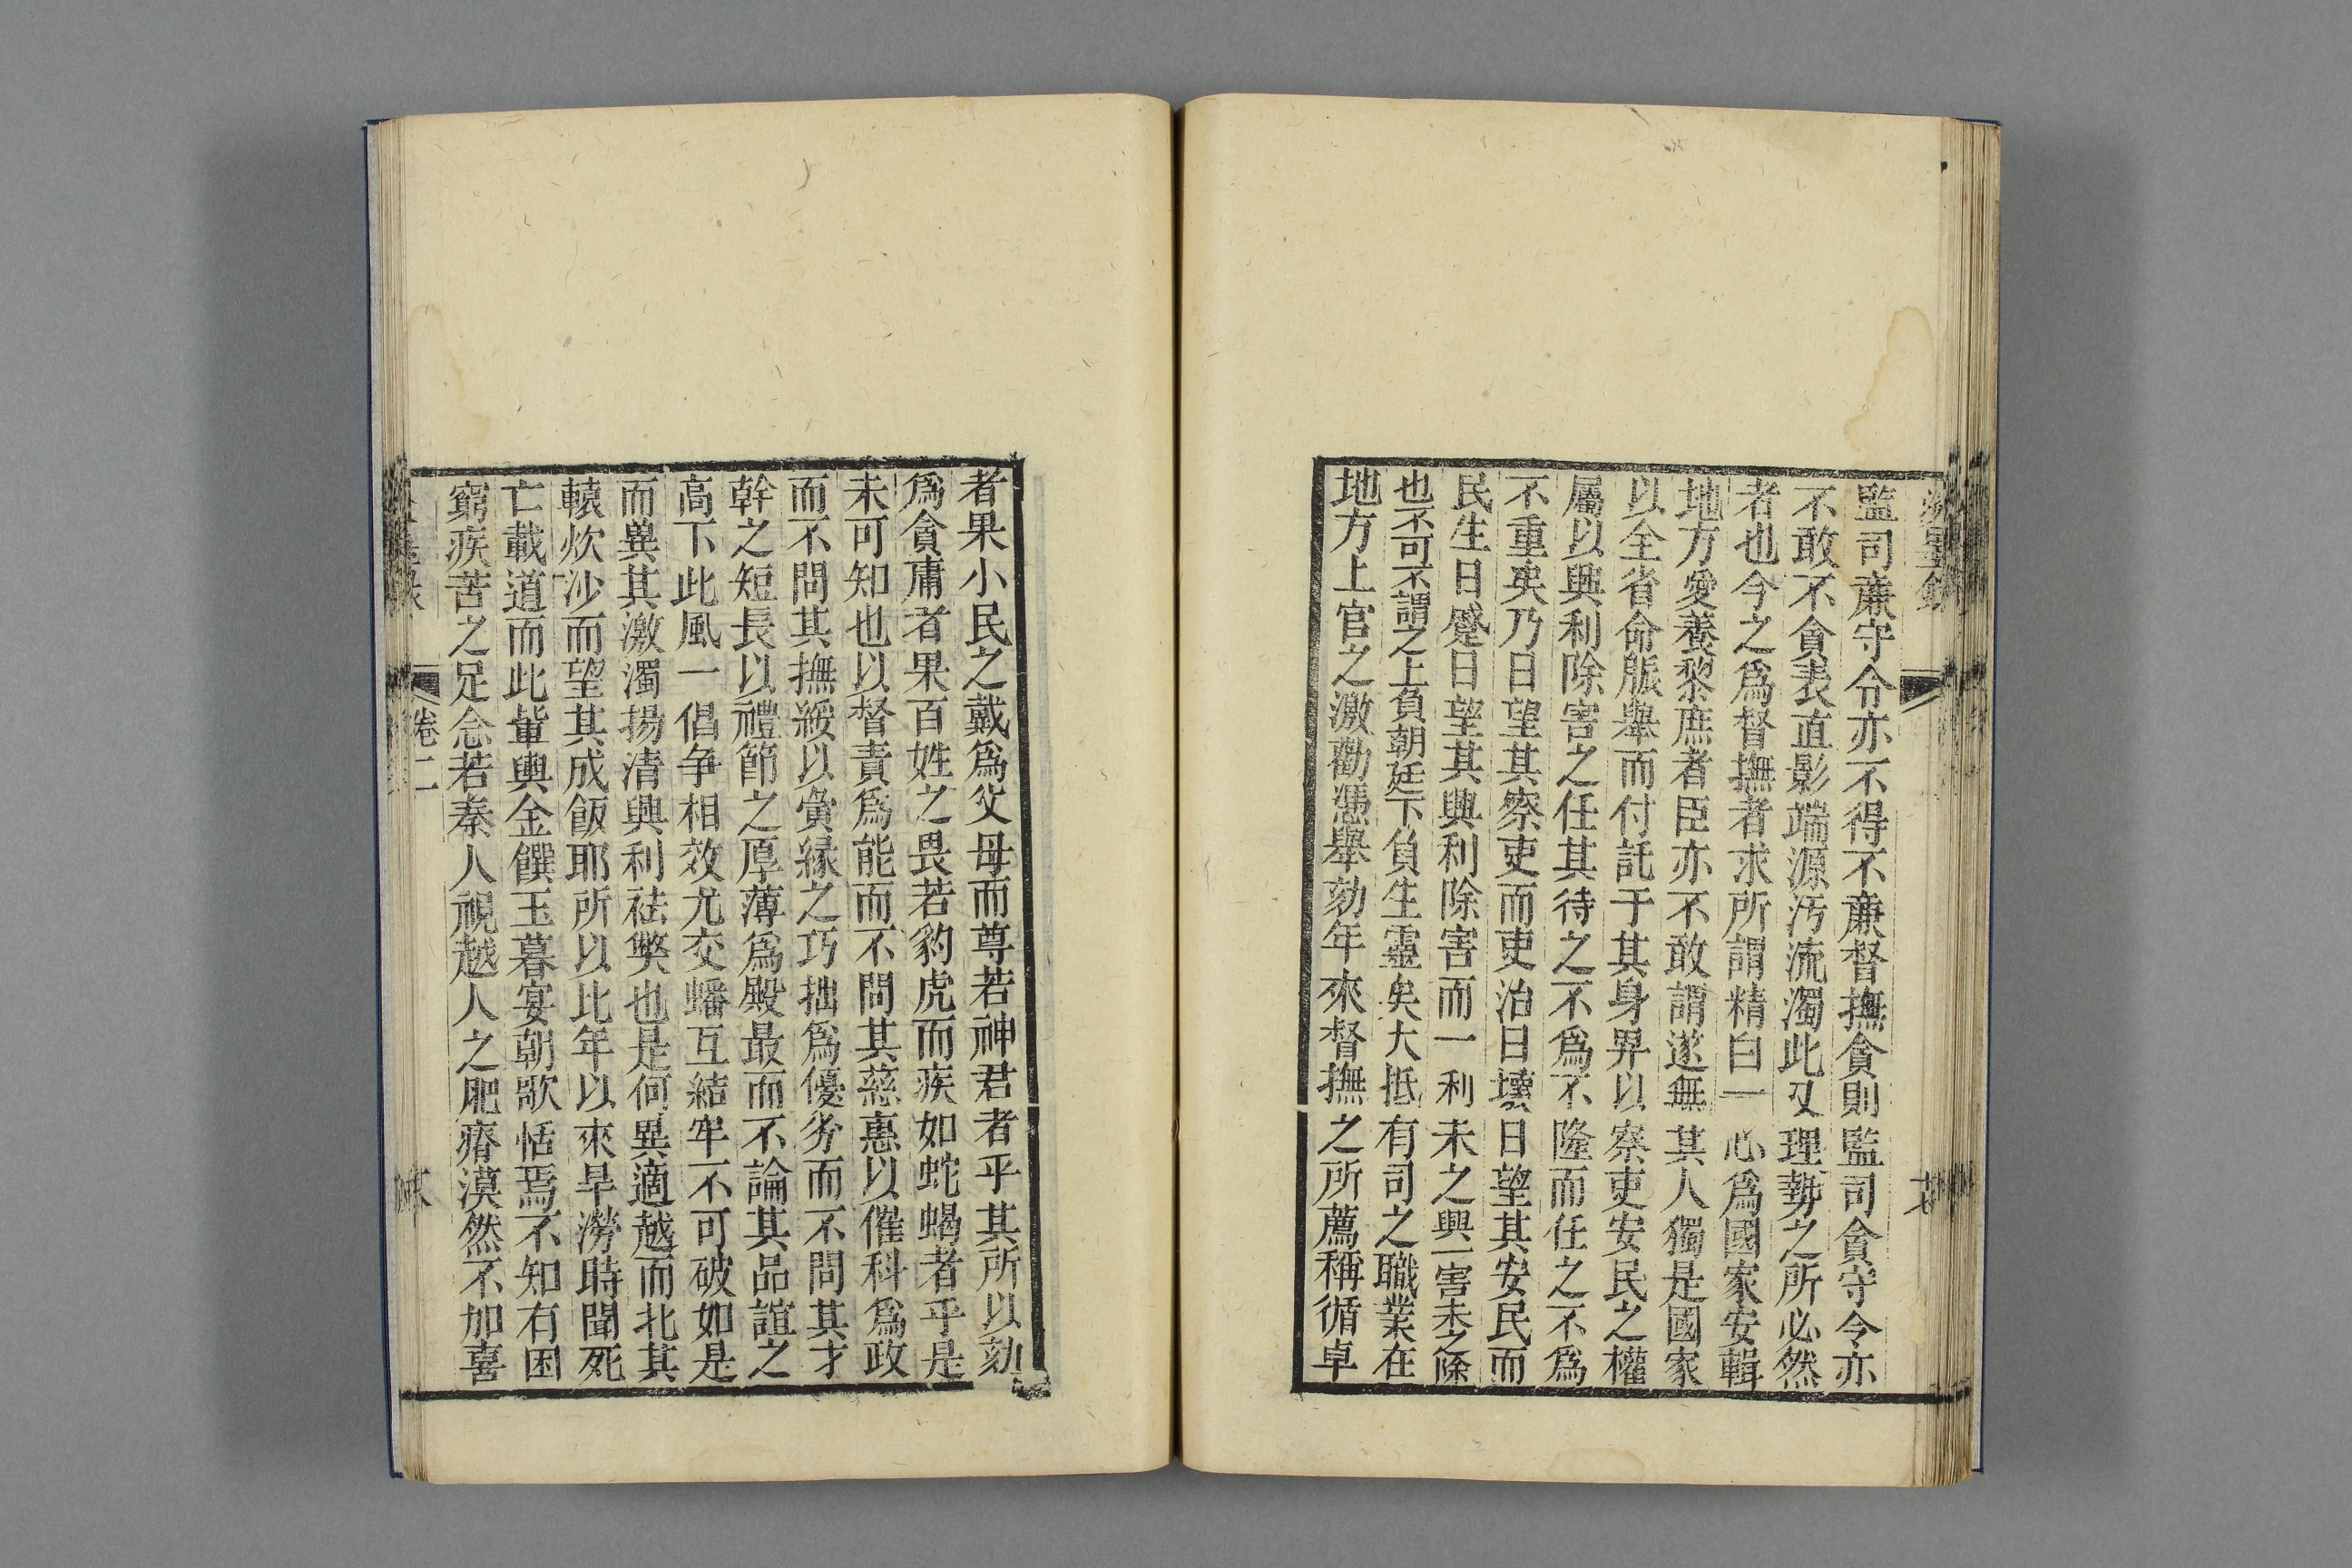 監司廉守令亦不得不廉督撫貪則監司貪守令亦
不敢不貪表直影端源汚流濁此又理勢之所必然
者也今之爲督撫者求所謂精白一心爲國家安輯
地方愛養黎庶者臣亦不敢謂遂無其人獨是國家
以全省命脈舉而付託于其身畀以察吏安民之權
屬以興利除害之任其待之不爲不隆而任之不爲
不重矣乃日望其察吏而吏治日壞日望其安民而
民生日蹙日望其興利除害而一利未之興一害未之除
也不可不謂之上負朝廷下負生靈矣大抵有司之職業在
地方上官之激勸憑舉劾年來督撫之所薦稱循卓
者果小民之戴爲父母而尊若神君者乎其所以劾
爲貪庸者果百姓之畏若豹虎而疾如蛇蝎者乎是
未可知也以督責爲能而不問其慈惠以催科爲政
而不問其撫綏以夤縁之巧拙爲優劣而不問其才
幹之短長以禮節之厚薄爲殿最而不論其品誼之
高下此風一倡爭相效尤交蟠互結牢不可破如是
而兾其激濁揚清興利祛獘也是何異適越而北其
轅炊沙而望其成飯耶所以比年以來旱澇時聞死
亡載道而此輩輿金饌玉暮宴朝歌恬焉不知有困
窮疾苦之足念若秦人視越人之肥瘠漠然不加喜
卷二